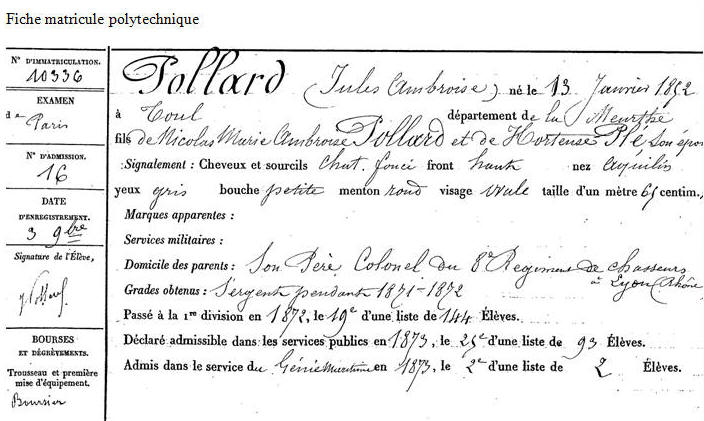 Fiche matricule polytechnique
N° D'IMMATRICULATION.
10336
EXAMEN
de Paris
N° D'ADMISSION.
16
DATE
D'ENREGISTREMENT.
3 9bre
Signature de l'Élève,
BOURSES
ET DÉGRÈVEMENTS.
Trousseau et première
mise d'équipement.
Boursier
Pollard (Jules Ambroise) né le 13 Janvier 1852
à Toul département de la Meurthe
fils de Nicolas Marie Ambroise Pollard et de Hortense Plé, son épou
Signalement : Cheveux et sourcils chat. foncé front haut nez aquilin
yeux gris bouche petite menton rond visage ovale taille d'un mètre 65 centim.,
Marques apparentes :
Services militaires :
Domicile des parents : Son Père, Colonel du 8e Régiment de chasseurs
à Lyon (Rhône)
Grades obtenus : Sergent pendant 1871-1872
Passé à la 1re division en 1872, le 19e d'une liste de 144 Élèves.
Déclaré admissible dans les services publics en 1873, le 25e d'une liste de 93 Élèves.
Admis dans le service du Génie Maritime en 1873, le 2e d'une liste de 2 Élèves.